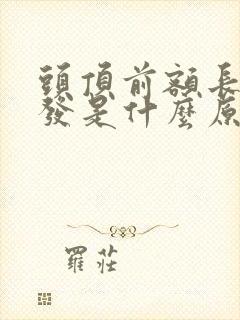 頭頂前額長
發是什麼原
羅莊